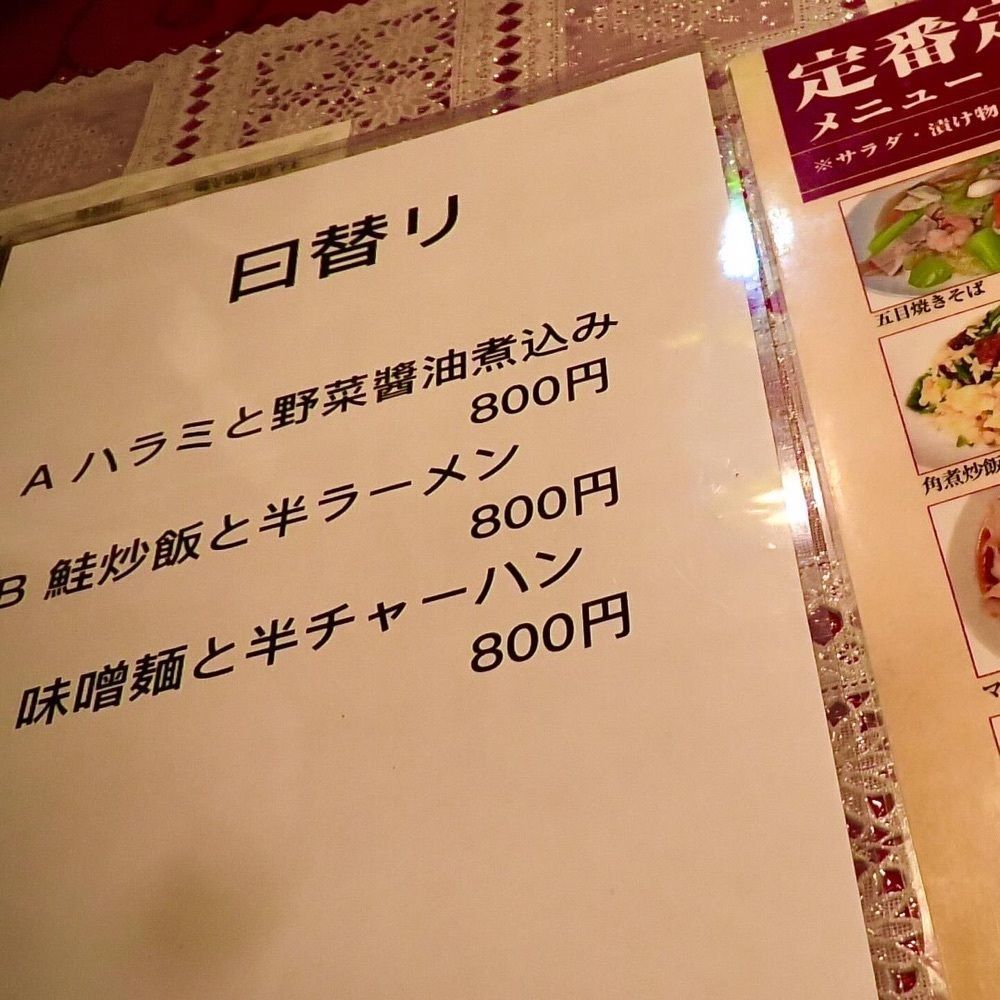 日替り
A ハラミと野菜醬油煮込み
800円
B 鮭炒飯と半ラーメン
800円
味噌麺と半チャーハン
800円
定番定
メニュー
※サラダ・漬け物
五目焼きそば
角煮炒飯
マ